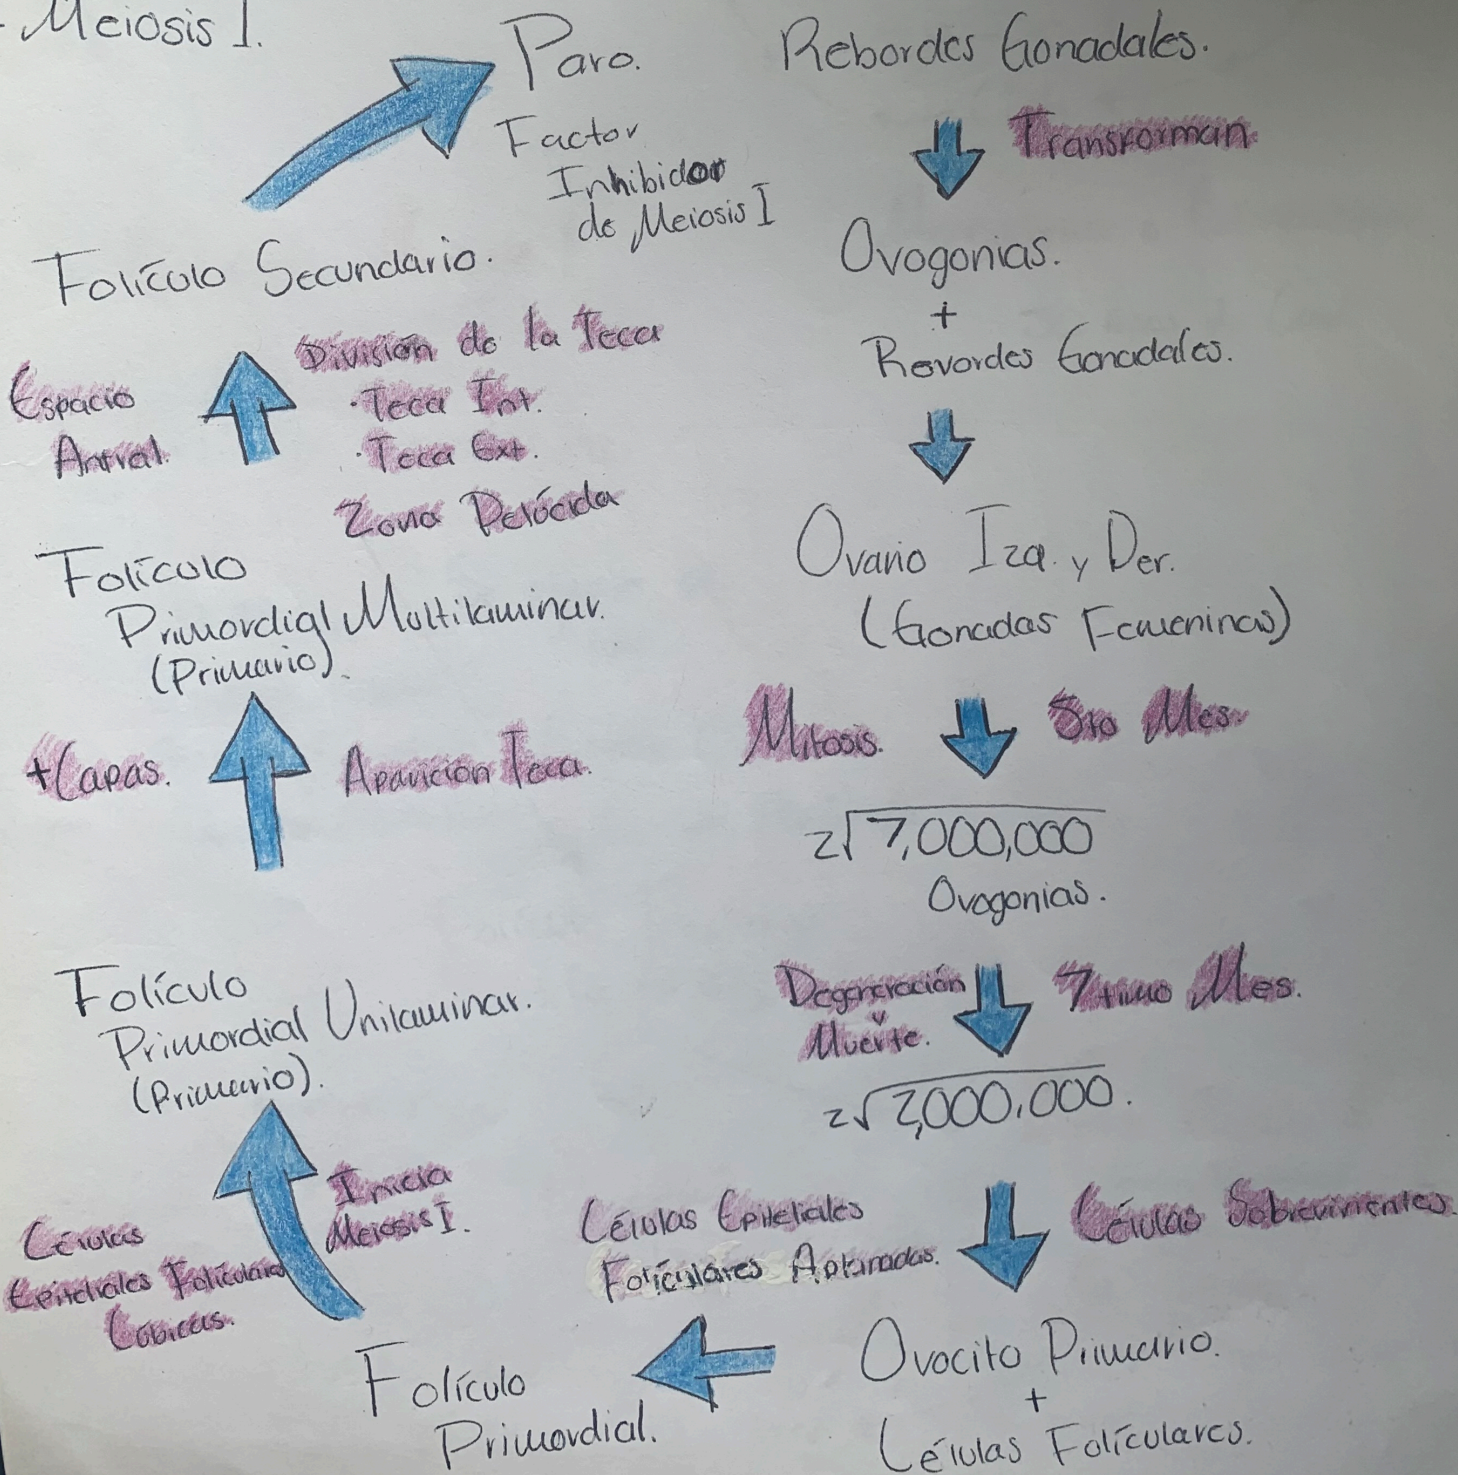 - Meiosis I.
Paro.
Factor
Inhibidor
de Meiosis I
Folículo Secundario.
División de la Teca
· Teca Int.
· Teca Ext.
Zona Pelúcida
Espacio
Antral.
Folículo
Primordial Multilaminar.
(Primario).
+Capas.
Aparición Teca.
Folículo
Primordial Unilaminar.
(Primario).
Inicia
Meiosis I.
Células
Epiteliales Foliculares
Cúbicas.
Folículo
Primordial.
Rebordes Gonadales.
Transforman
Ovogonias.
+
Revordes Gonadales.
Ovario Izq. y Der.
(Gonadas Femeninas)
Mitosis.
5to Mes.
2√7,000,000
Ovogonias.
Degeneración
y
Muerte.
7timo Mes.
2√2,000,000.
Células Epiteliales
Foliculares Aplanadas.
Células Sobrevivientes.
Ovocito Primario.
+
Células Folículares.